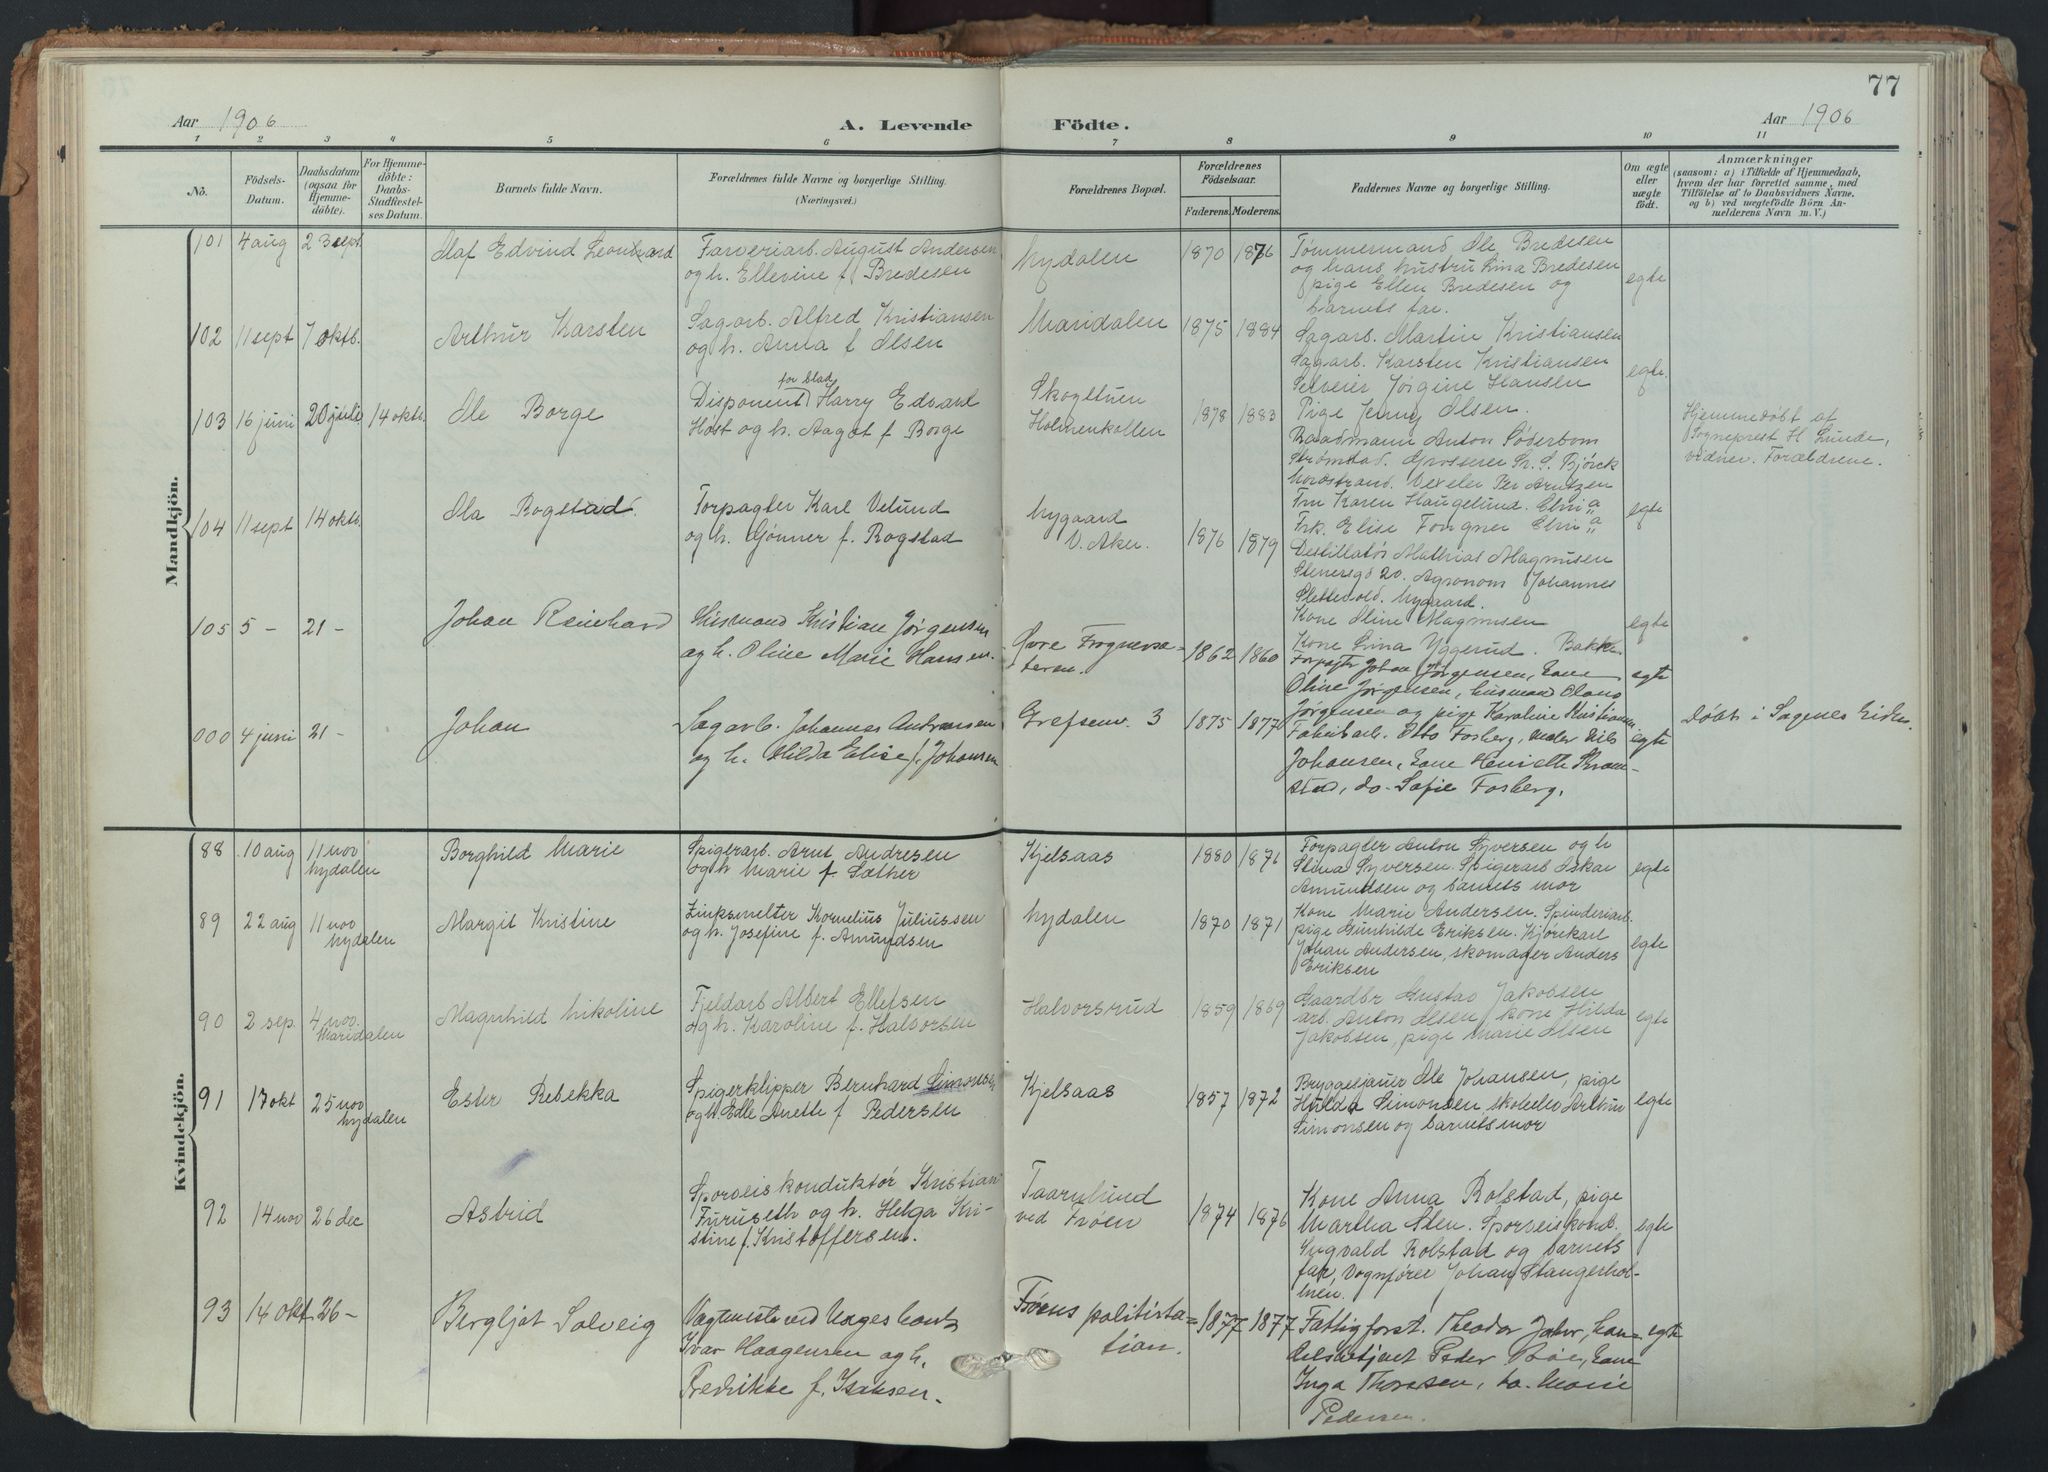 77
Aar 1906
A. Levende Födte.
Aar 1906
1 2 3 4 5 6 7 8 9 10 11
Nö.
Födsels-Datum.
Daabsdatum (ogsaa for Hjemmedöbte).
For Hjemmedöbte: Daabs-Stadfæstelses Datum.
Barnets fulde Navn.
Forældrenes fulde Navne og borgerlige Stilling.
(Næringsvei.)
Forældrenes Bopæl.
Forældrenes Födselsaar.
Faderens. Moderens.
Faddernes Navne og borgerlige Stilling.
Om ægte eller uægte födt.
Anmærkninger
(saasom: a) i Tilfælde af Hjemmedaab, hvem der har forrettet samme, med Tilföielse af to Daabsvidners Navne. og b) ved uægtefödte Börn Anmelderens Navn m. V.)
Mandkjön.
101 4 aug 23 sept. Olaf Edvind Leonhard
Farveriarb. August Andersen
og h. Ellevine f. Bredesen
Nydalen 1870 1876
Tømmermand Ole Bredesen
og hans hustru Lina Bredesen
pige Ellen Bredesen og
barnets far.
egte
102 11 sept 7 oktb. Arthur Karsten
Sagarb. Alfred Kristiansen
og h. Anna f Olsen
Maridalen 1875 1884
Sagarb. Martin Kristiansen
Sagarb. Karsten Kristiansen
Selveier Jørgine Hansen
Pige Jenny Olsen.
egte.
103 16 juni 20 juli 14 oktb. Ole Borge
for blad
Disponent Harry Edvard
Høst og h. Aagot f Borge
Skogtun
Holmenkollen 1878 1883
Raadmann Anton Søderbom
Strømstad. Grosserer Sr. S. Bjørck
Nordstrand. Vexeler Per Arntzen
Fru Karen Haugelund. Chri a
Frk. Elise Fougner Chri a
egte
Hjemmedøbt af
Sogneprest H. Lunde,
vidner. Forældrene.
104 11 sept 14 oktb. Ola Rogstad.
Forpagter Karl Velund
og h. Gjønner f. Rogstad
Nygaard
V. Aker. 1876 1879
Destillatør Mathias Magnusen
Stenersgd 20. Agronom Johannes
Slettevold. Nygaard.
Kone Oline Magnusen
Kone Lina Yggerud. Bakke
egte
105 5 - 21 - Johan Reinhard
Husmand Kristian Jørgensen
og h. Oline Marie Hansen.
Øvre Frognersæteren. 1862 1860
Forpagtr Johan Jørgensen, Kone
Oline Jørgensen, husmand Olaus
Jørgensen og pige Karoline Kristiansen
egte
000 4 juni 21 - Johan
Sagarb. Johannes Andreasen
og h. Hilda Elise f. Johansen
Grefsenv. 3 1875 1877
Fabrikarb. Otto Forsberg, maler Nils
Johansen, Kone Henriette Kramstad, do. Sofie Forsberg.
egte
Døbt i Sagenes kirke.
Kvindekjön.
88 10 aug 11 nov Nydalen Borghild Marie
Spigerarb. Arnt Andresen
og h Marie f. Sæther
Kjelsaas 1880 1871
Forpagter Anton Syversen og h
Stina Syversen. Spigerarb Oskar
Amundsen og barnets mor
egte
89 22 aug 11 nov Nydalen Margit Kristine
Zinksmelter Kornelius Juliussen
og h. Josefine f. Amundsen
Nydalen 1870 1871
Kone Marie Andersen. Spinderiarb.
pige Gunhilde Eriksen. Kjørekarl
Johan Andersen, skomager Anders
Eriksen
egte
90 2 sep. 4 nov. Maridalen Magnhild Nikoline
Fjeldarb Albert Ellefsen
og h. Karoline f. Halvorsen
Halvorsrud 1859 1869
Gaardbr Gustav Jakobsen
arb. Anton Olsen, kone Hilda
Jakobsen, pige Marie Olsen
egte
91 17 okt 25 nov Nydalen Ester Rebekka
Spigerklipper Bernhard Simonsen
og h. Elle Anette f Pedersen
Kjelsaas 1857 1872
Bryggesjauer Ole Johansen, pige
Hulda Simonsen, skoelev Arthur
Simonsen og barnets mor
egte
92 14 nov 26 dec Astrid
Sporveiskonduktør Kristian
Furuseth og h. Helga Kristine f. Kristoffersen.
Taarnlund
ved Frøen 1874 1876
Kone Anna Rolstad, pige
Martha Sten. Sporveiskond.
Ingvald Rolstad og barnets
far, Vognfører Johan Stangerholmen.
egte
93 14 okt 26 - Bergljot Solveig
Vagtmester ved Norges bank
Ivar Haagensen og h.
Fredrikke f. Isaksen.
Frøens politistation. 1877 1877
Fattigforst. Theodor Jahr, handelsbetjent Peder Bøe, Kone
Inga Thoresen, do. Marie
Pedersen.
egte